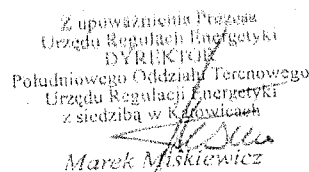 Z upoważnienia Prezesa
Urzędu Regulacji Energetyki
DYREKTOR
Południowego Oddziału Terenowego
Urzędu Regulacji Energetyki
z siedzibą w Katowicach
Marek Miśkiewicz